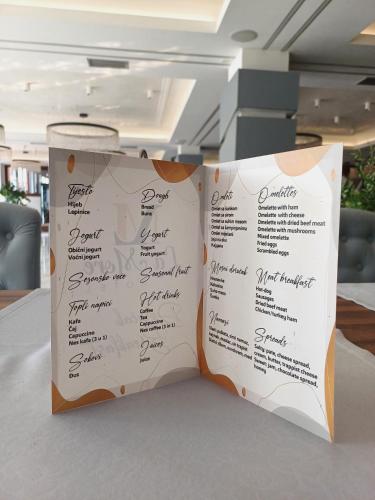 Tijesto
Hljeb
Lepinice
Jogurt
Obični jogurt
Voćni jogurt
Sezonsko voće
Topli napici
Kafa
Čaj
Cappuccino
Nes kafa (3 u 1)
Sokovi
Đus
Dough
Bread
Buns
Yogurt
Yogurt
Fruit yogurt
Seasonal fruit
Hot drinks
Coffee
Tea
Cappuccino
Nes coffee (3 in 1)
Juices
Juice
Omleti
Omlet sa šunkom
Omlet sa sirom
Omlet sa suhim mesom
Omlet sa šampinjonima
Omlet miješani
Jaja na oko
Kajgana
Mesni doručak
Hrenovke
Kobasice
Suho meso
Šunka
Namazi
Omelettes
Omelette with ham
Omelette with cheese
Omelette with dried beef meat
Omelette with mushrooms
Mixed omelette
Fried eggs
Scrambled eggs
Meat breakfast
Hot dog
Sausages
Dried beef meat
Chicken/turkey ham
Spreads
Salty pate, cheese spread,
cream, butter, trappist cheese
Sweet: jam, chocolate spread,
honey